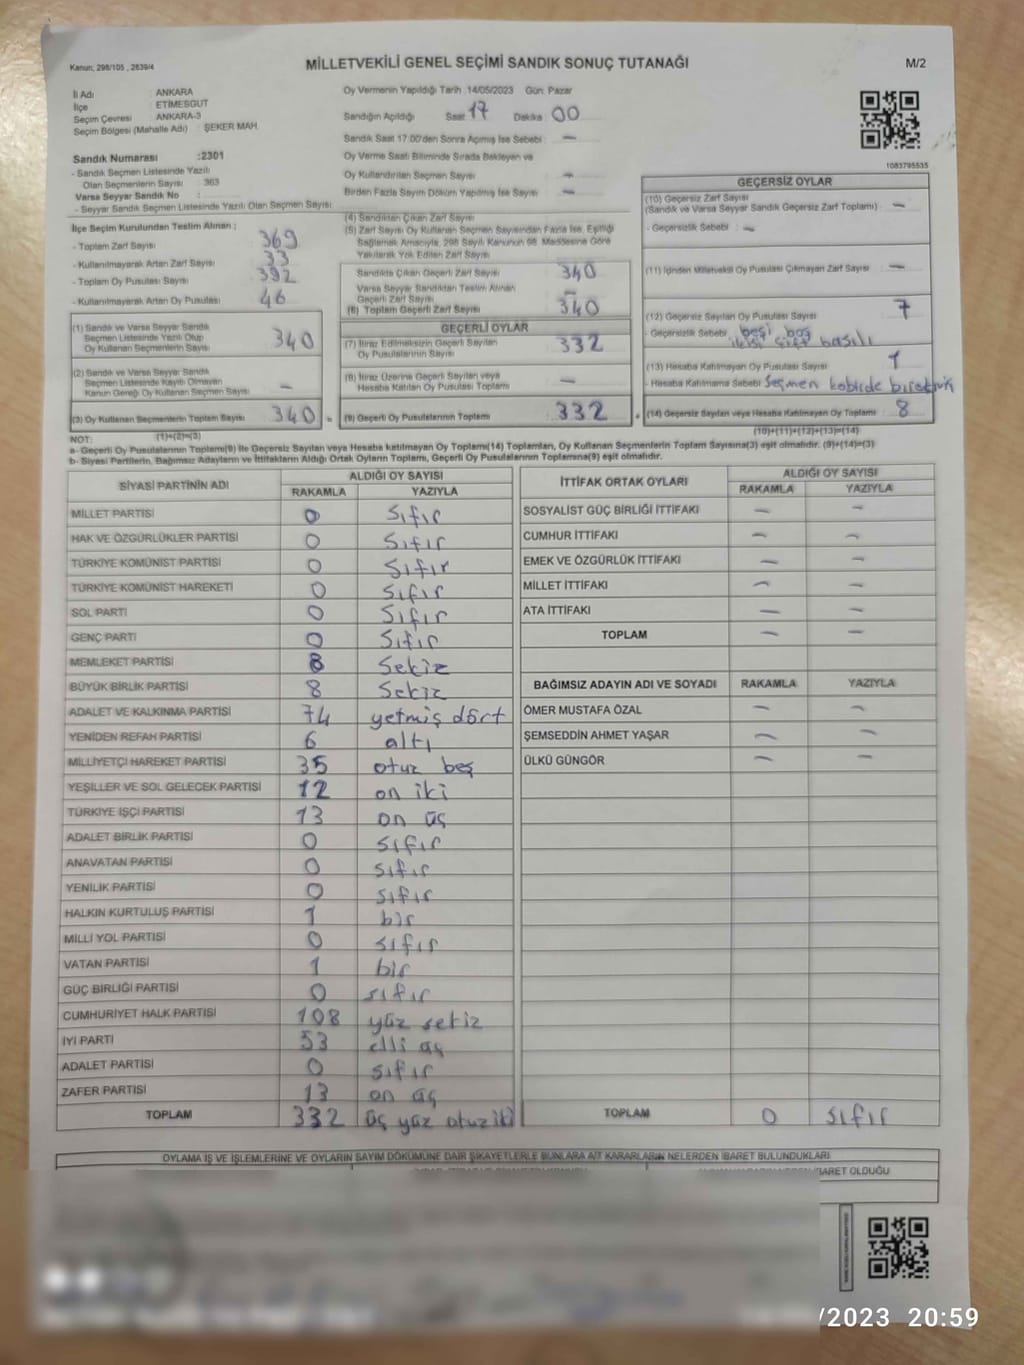 Kanun, 298/105 , 2839/4
MİLLETVEKİLİ GENEL SEÇİMİ SANDIK SONUÇ TUTANAĞI
M/2
İl Adı : ANKARA
İlçe : ETİMESGUT
Seçim Çevresi : ANKARA-3
Seçim Bölgesi (Mahalle Adı) : ŞEKER MAH.
Sandık Numarası :2301
- Sandık Seçmen Listesinde Yazılı
Olan Seçmenlerin Sayısı : 363
Varsa Seyyar Sandık No :
- Seyyar Sandık Seçmen Listesinde Yazılı Olan Seçmen Sayısı:
İlçe Seçim Kurulundan Teslim Alınan ;
- Toplam Zarf Sayısı 369
- Kullanılmayarak Artan Zarf Sayısı 33
- Toplam Oy Pusulası Sayısı 392
- Kullanılmayarak Artan Oy Pusulası 46
(1) Sandık ve Varsa Seyyar Sandık
Seçmen Listesinde Yazılı Olup
Oy Kullanan Seçmenlerin Sayısı 340
(2) Sandık ve Varsa Seyyar Sandık
Seçmen Listesinde Kayıtlı Olmayan
Kanun Gereği Oy Kullanan Seçmen Sayısı –
(3) Oy Kullanan Seçmenlerin Toplam Sayısı 340 =
(1)+(2)=(3)
Oy Vermenin Yapıldığı Tarih :14/05/2023 Gün: Pazar
Sandığın Açıldığı Saat 17 Dakika 00
Sandık Saat 17.00'den Sonra Açılmış İse Sebebi –
Oy Verme Saati Bitiminde Sırada Bekleyen ve
Oy Kullandırılan Seçmen Sayısı –
Birden Fazla Sayım Döküm Yapılmış İse Sayısı –
(4) Sandıktan Çıkan Zarf Sayısı
(5) Zarf Sayısı Oy Kullanan Seçmen Sayısından Fazla İse, Eşitliği
Sağlamak Amacıyla, 298 Sayılı Kanunun 98. Maddesine Göre
Yakılarak Yok Edilen Zarf Sayısı
Sandıkta Çıkan Geçerli Zarf Sayısı 340
Varsa Seyyar Sandıktan Teslim Alınan
Geçerli Zarf Sayısı –
(6) Toplam Geçerli Zarf Sayısı 340
GEÇERLİ OYLAR
(7) İtiraz Edilmeksizin Geçerli Sayılan
Oy Pusulalarının Sayısı 332
(8) İtiraz Üzerine Geçerli Sayılan veya
Hesaba Katılan Oy Pusulası Toplamı –
(9) Geçerli Oy Pusulalarının Toplamı 332 +
1083795535
GEÇERSİZ OYLAR
(10) Geçersiz Zarf Sayısı
(Sandık ve Varsa Seyyar Sandık Geçersiz Zarf Toplamı) –
- Geçersizlik Sebebi : –
(11) İçinden Milletvekili Oy Pusulası Çıkmayan Zarf Sayısı –
(12) Geçersiz Sayılan Oy Pusulası Sayısı 7
- Geçersizlik Sebebi : beşi boş
ikisi çift basılı
(13) Hesaba Katılmayan Oy Pusulası Sayısı 1
- Hesaba Katılmama Sebebi : Seçmen kabinde
(14) Geçersiz Sayılan veya Hesaba Katılmayan Oy Toplamı 8
(10)+(11)+(12)+(13)=(14)
NOT:
a- Geçerli Oy Pusulalarının Toplamı(9) ile Geçersiz Sayılan veya Hesaba katılmayan Oy Toplamı(14) Toplamları, Oy Kullanan Seçmenlerin Toplam Sayısına(3) eşit olmalıdır. (9)+(14)=(3)
b- Siyasi Partilerin, Bağımsız Adayların ve İttifakların Aldığı Ortak Oyların Toplamı, Geçerli Oy Pusulalarının Toplamına(9) eşit olmalıdır.
SİYASİ PARTİNİN ADI ALDIĞI OY SAYISI
RAKAMLA YAZIYLA
MİLLET PARTİSİ 0 Sıfır
HAK VE ÖZGÜRLÜKLER PARTİSİ 0 Sıfır
TÜRKİYE KOMÜNİST PARTİSİ 0 Sıfır
TÜRKİYE KOMÜNİST HAREKETİ 0 Sıfır
SOL PARTİ 0 Sıfır
GENÇ PARTİ 0 Sıfır
MEMLEKET PARTİSİ 8 Sekiz
BÜYÜK BİRLİK PARTİSİ 8 Sekiz
ADALET VE KALKINMA PARTİSİ 74 yetmiş dört
YENİDEN REFAH PARTİSİ 6 altı
MİLLİYETÇİ HAREKET PARTİSİ 35 otuz beş
YEŞİLLER VE SOL GELECEK PARTİSİ 12 on iki
TÜRKİYE İŞÇİ PARTİSİ 13 on üç
ADALET BİRLİK PARTİSİ 0 sıfır
ANAVATAN PARTİSİ 0 sıfır
YENİLİK PARTİSİ 0 sıfır
HALKIN KURTULUŞ PARTİSİ 1 bir
MİLLİ YOL PARTİSİ 0 sıfır
VATAN PARTİSİ 1 bir
GÜÇ BİRLİĞİ PARTİSİ 0 sıfır
CUMHURİYET HALK PARTİSİ 108 yüz sekiz
İYİ PARTİ 53 elli üç
ADALET PARTİSİ 0 sıfır
ZAFER PARTİSİ 13 on üç
TOPLAM 332 üç yüz otuz iki
İTTİFAK ORTAK OYLARI ALDIĞI OY SAYISI
RAKAMLA YAZIYLA
SOSYALİST GÜÇ BİRLİĞİ İTTİFAKI – –
CUMHUR İTTİFAKI – –
EMEK VE ÖZGÜRLÜK İTTİFAKI – –
MİLLET İTTİFAKI – –
ATA İTTİFAKI – –
TOPLAM – –
BAĞIMSIZ ADAYIN ADI VE SOYADI RAKAMLA YAZIYLA
ÖMER MUSTAFA ÖZAL – –
ŞEMSEDDİN AHMET YAŞAR – –
ÜLKÜ GÜNGÖR – –
TOPLAM 0 sıfır
OYLAMA İŞ VE İŞLEMLERİNE VE OYLARIN SAYIM DÖKÜMÜNE DAİR ŞİKAYETLERLE BUNLARA AİT KARARLARIN NELERDEN İBARET BULUNDUKLARI
BARET OLDUĞU
/2023 20:59